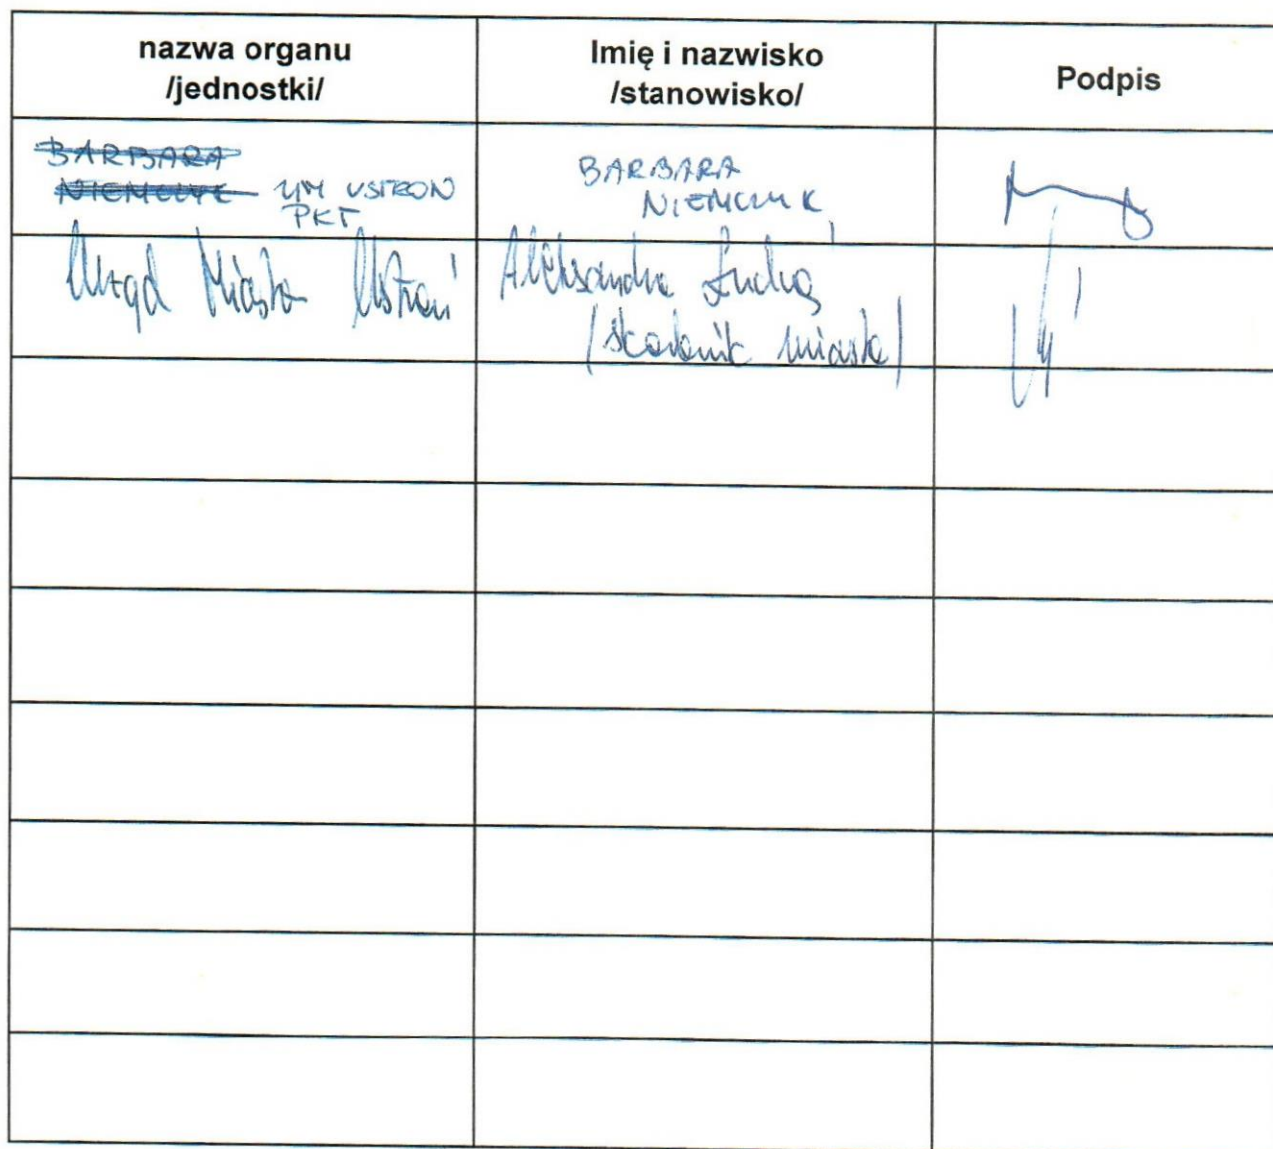 nazwa organu
/jednostki/
Imię i nazwisko
/stanowisko/
Podpis
BARBARA
NIEMCZYK UM USTROŃ
PKT
BARBARA
NIEMCZYK
Urząd Miasta Ustroń
Aleksandra
/skarbnik miasta/